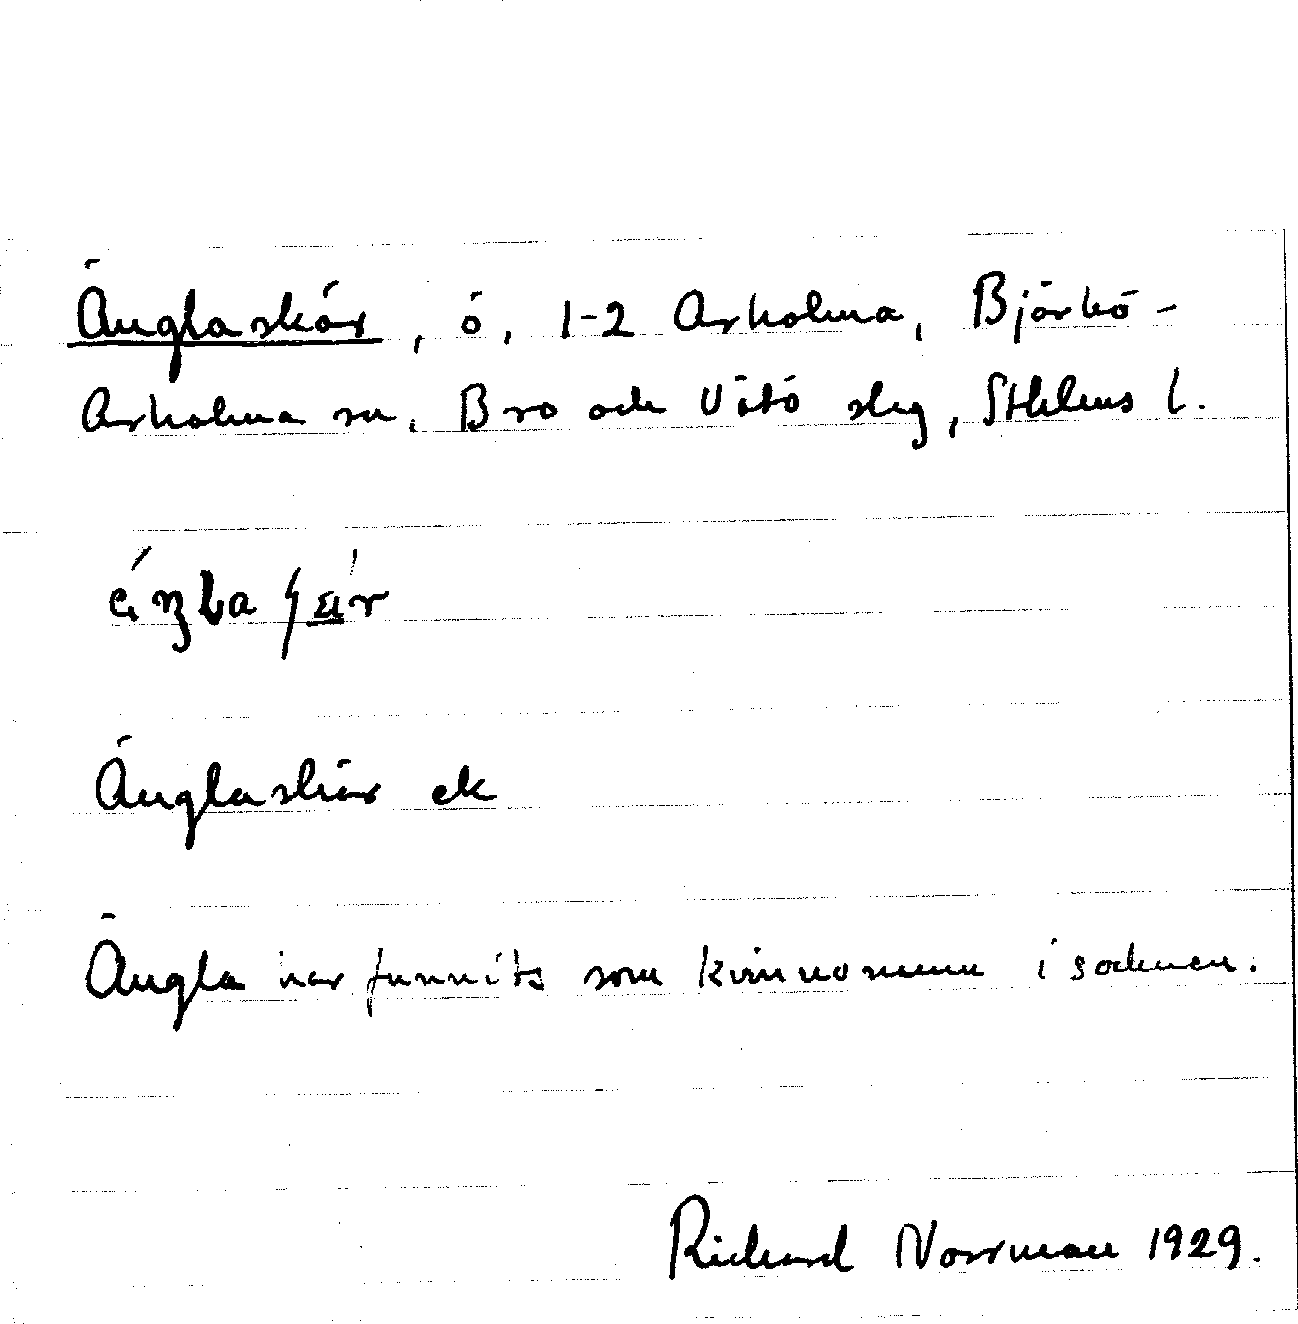 Änglaskär, ö, 1-2 Arholma, Björkö-
Arholma sn, Bro och Vätö slg, Sthlms l.
Änglaskär ek
Ängla har funnits som kvinnonamn i socknen.
Richard Norrman 1929.